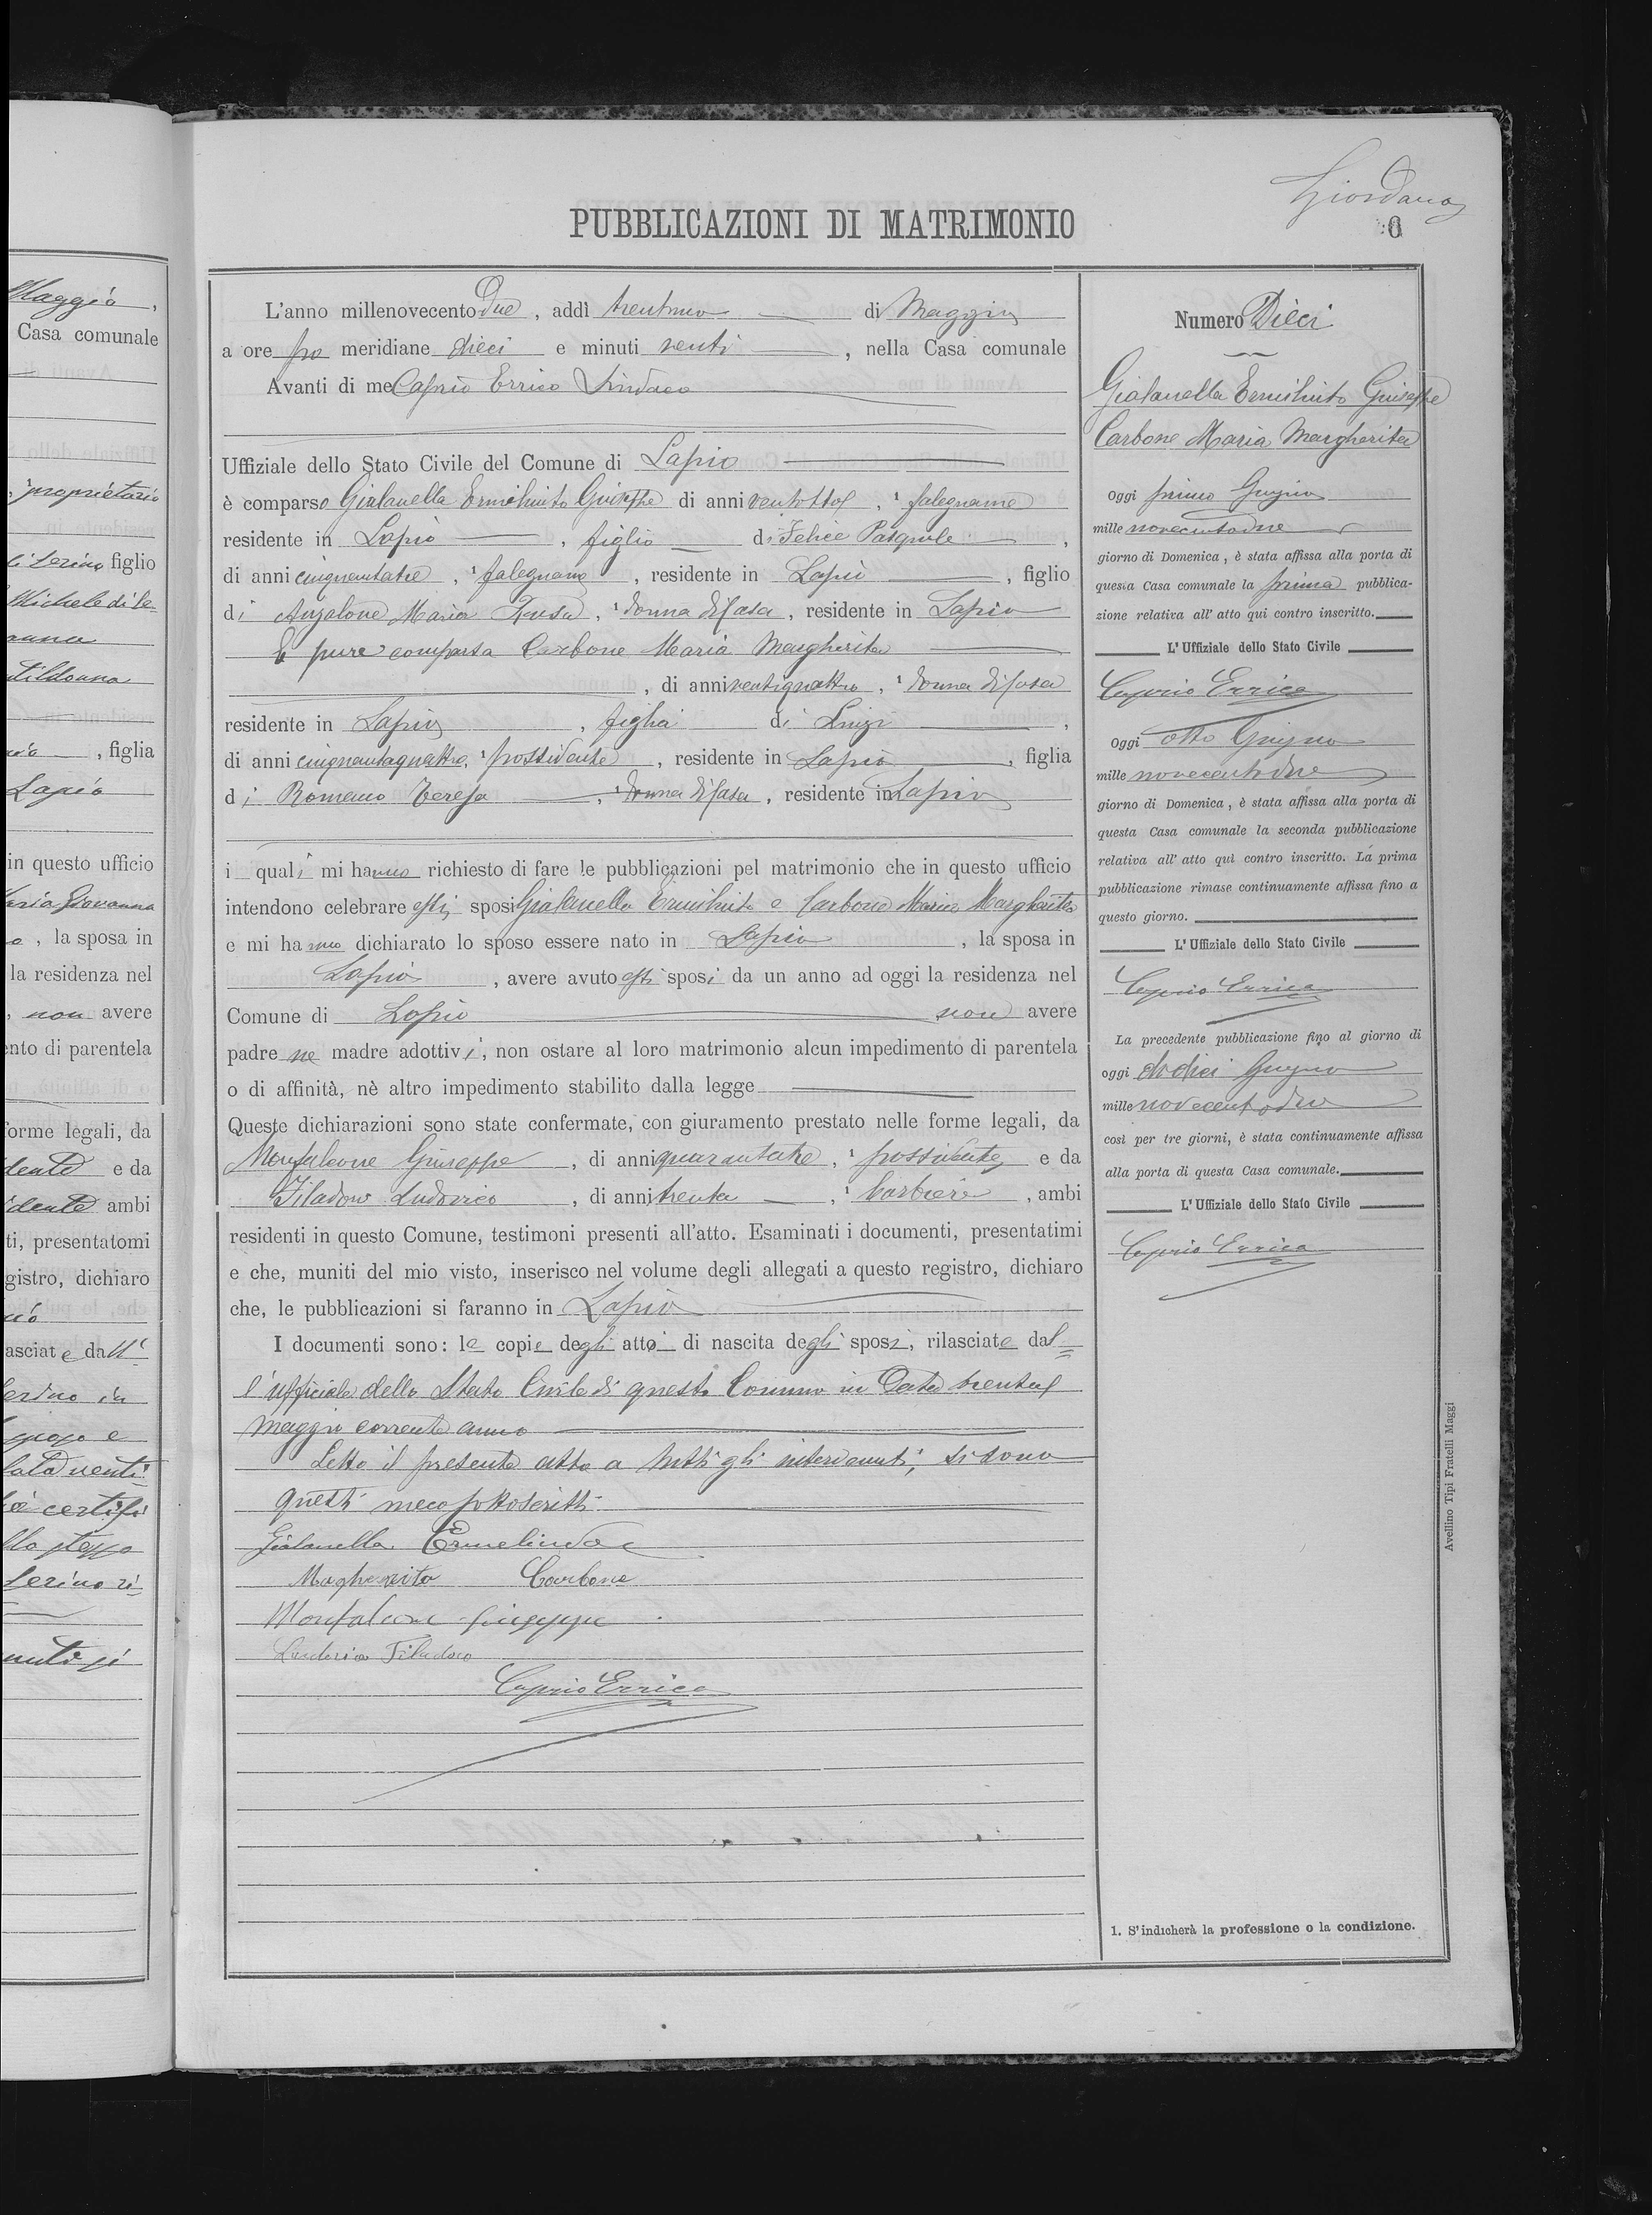 Maggio,
Casa comunale
proprietario
figlio
Michele di Se-
, figlia
Lapio
in questo ufficio
Maria Giovanna
, la sposa in
la residenza nel
, non avere
ento di parentela
forme legali, da
dente e da
idente ambi
ti, presentatomi
gistro, dichiaro
asciate dall'
sposo e
certifi
stesso
Serino ri-
nuti si
Giordano
PUBBLICAZIONI DI MATRIMONIO
6
L'anno millenovecento Due, addì trentuno di Maggio
a ore pro meridiane dieci e minuti venti, nella Casa comunale
Avanti di me Caprio Errico Sindaco
Uffiziale dello Stato Civile del Comune di Lapio
è comparso Gialanella Ermelinito Giuseppe di anni ventotto, ¹ falegname
residente in Lapio, figlio di Felice Pasquale,
di anni cinquantatre, ¹ falegname, residente in Lapio, figlio
di Anzalone Maria Rausa, ¹ donna di casa, residente in Lapio
È pure comparsa Carbone Maria Margherita
, di anni ventiquattro, ¹ donna di casa
residente in Lapio, figlia di Luigi,
di anni cinquantaquattro, ¹ possidente, residente in Lapio, figlia
di Romano Teresa, ¹ donna di casa, residente in Lapio
i quali mi hanno richiesto di fare le pubblicazioni pel matrimonio che in questo ufficio
intendono celebrare essi sposi Gialanella Ermelinito e Carbone Maria Margherita
e mi hanno dichiarato lo sposo essere nato in Lapio, la sposa in
Lapio, avere avuto essi sposi da un anno ad oggi la residenza nel
Comune di Lapio non avere
padre ne madre adottivi, non ostare al loro matrimonio alcun impedimento di parentela
o di affinità, nè altro impedimento stabilito dalla legge
Queste dichiarazioni sono state confermate, con giuramento prestato nelle forme legali, da
Monfalcone Giuseppe, di anni quarantatre, ¹ possidente, e da
Filadoro Ludovico, di anni trenta, ¹ barbiere, ambi
residenti in questo Comune, testimoni presenti all'atto. Esaminati i documenti, presentatimi
e che, muniti del mio visto, inserisco nel volume degli allegati a questo registro, dichiaro
che, le pubblicazioni si faranno in Lapio
I documenti sono: le copie degli atti di nascita degli sposi, rilasciate dal=
l'ufficiale dello Stato Civile di questo Comune in data trenta
maggio corrente anno
Letto il presente atto a tutti gli intervenuti, si sono
questi meco sottoscritti
Gialanella Ermelindo
Margherita Carbone
Monfalcone Giuseppe
Ludovico Filadoro
Caprio Errico
Numero Dieci
Gialanella Ermelinito Giuseppe
Carbone Maria Margherita
Oggi primo Giugno
mille novecentodue
giorno di Domenica, è stata affissa alla porta di
questa Casa comunale la prima pubblica-
zione relativa all'atto qui contro inscritto.
L'Uffiziale dello Stato Civile
Caprio Errico
Oggi otto Giugno
mille novecentodue
giorno di Domenica, è stata affissa alla porta di
questa Casa comunale la seconda pubblicazione
relativa all'atto qui contro inscritto. La prima
pubblicazione rimase continuamente affissa fino a
questo giorno.
L'Uffiziale dello Stato Civile
Caprio Errico
La precedente pubblicazione fino al giorno di
oggi dodici Giugno
mille novecentodue
così per tre giorni, è stata continuamente affissa
alla porta di questa Casa comunale.
L'Uffiziale dello Stato Civile
Caprio Errico
1. S'indicherà la professione o la condizione.
Avellino Tipi Fratelli Maggi